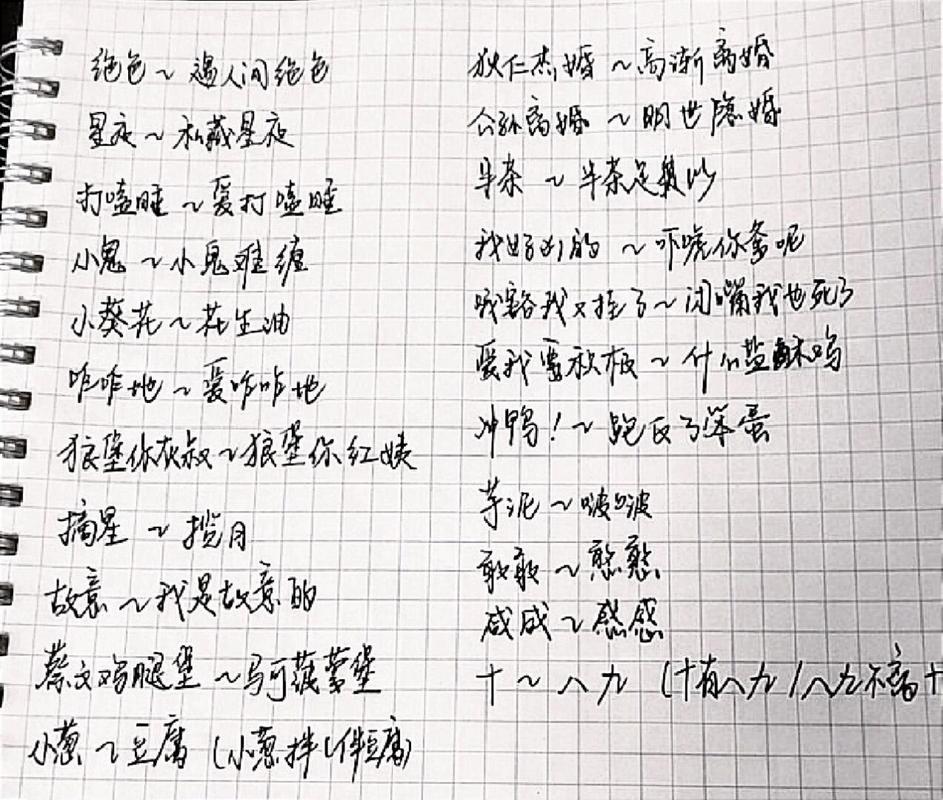 绝色～遇人间绝色
星夜～私藏星夜
打嗑睡～爱打嗑睡
小鬼～小鬼难缠
小葵花～花生油
咋咋地～爱咋咋地
狼堡你灰叔～狼堡你红姨
摘星～揽月
故意～我是故意的
蔡文鸡腿堡～马可菠萝堡
小葱～豆腐(小葱拌豆腐)
狄仁杰婚～高渐离婚
公孙离婚～明世隐婚
半茶～半茶足矣
我好的～吓唬你爹呢
哦豁我又挂了～闭嘴我也死了
爱我要秋板～什么盐酥鸡
冲鸭！～跑反了笨蛋
芋泥～啵啵
敢敢～憨憨
咸咸～感感
十～八九(十有八九/八九不离十